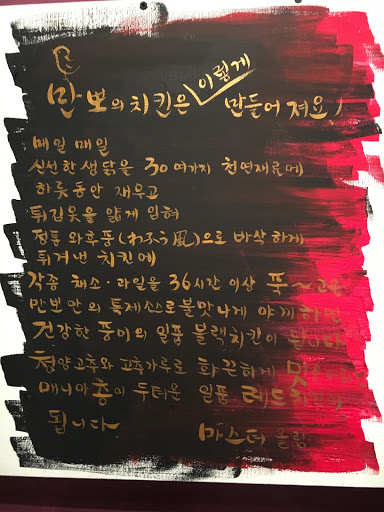 만뽀의 치킨은 이렇게 만들어 져요!
매일 매일
신선한 생닭을 30여가지 천연재료에
하룻동안 재우고
튀김옷을 얇게 입혀
정통 와후풍(わふう風)으로 바삭하게
튀겨낸 치킨에
각종 채소·과일을 36시간 이상 푸~고은
만뽀만의 특제소스로 불맛나게 야끼하면
건강한 풍미의 일품 블랙치킨이 됩니다
청양고추와 고춧가루로 화끈하게
매니아층이 두터운 일품 레드
됩니다
마스터 올림